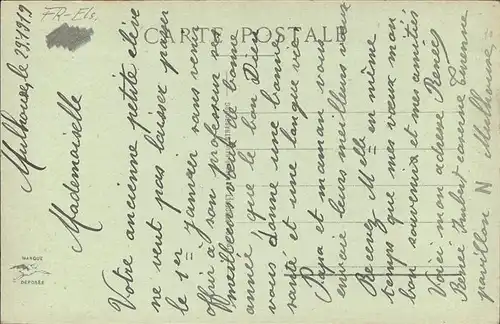 FR-Els.
CARTE POSTALE
Mulhouse, le 29.1.1919
Mademoiselle
Votre ancienne petite élève
ne veut pas laisser passer
le 1er Janvier sans venir
offrir à son professeur ses
meilleurs vœux de bonne
année que le bon Dieu
vous donne une bonne
santé et une longue vie
Papa et maman vous
envoie leurs meilleurs vœux
Recevez Melle en même
temps que mes vœux mon
bon souvenirs et mes amitiés
Voici mon adresse Renée
Renée Imbert caserne Turenne
pavillon N Mulhouse =
MARQUE
DEPOSÉE